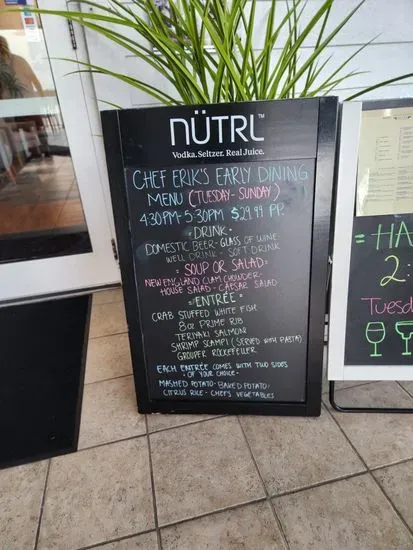 NÜTRL™
Vodka. Seltzer. Real Juice.
CHEF ERIK'S EARLY DINING
MENU (TUESDAY - SUNDAY)
4:30PM-5:30PM $29.99 PP
·DRINK·
DOMESTIC BEER - GLASS OF WINE
WELL DRINK - SOFT DRINK
·SOUP OR SALAD·
NEW ENGLAND CLAM CHOWDER-
HOUSE SALAD - CAESAR SALAD
·ENTRÉE·
CRAB STUFFED WHITE FISH
8oz PRIME RIB
TERIYAKI SALMON
SHRIMP SCAMPI (SERVED WITH PASTA)
GROUPER ROCKEFELLER
EACH ENTRÉE COMES WITH TWO SIDES
·OF YOUR CHOICE·
MASHED POTATO - BAKED POTATO
CITRUS RICE - CHEF'S VEGETABLES
=HA
2:
Tuesd